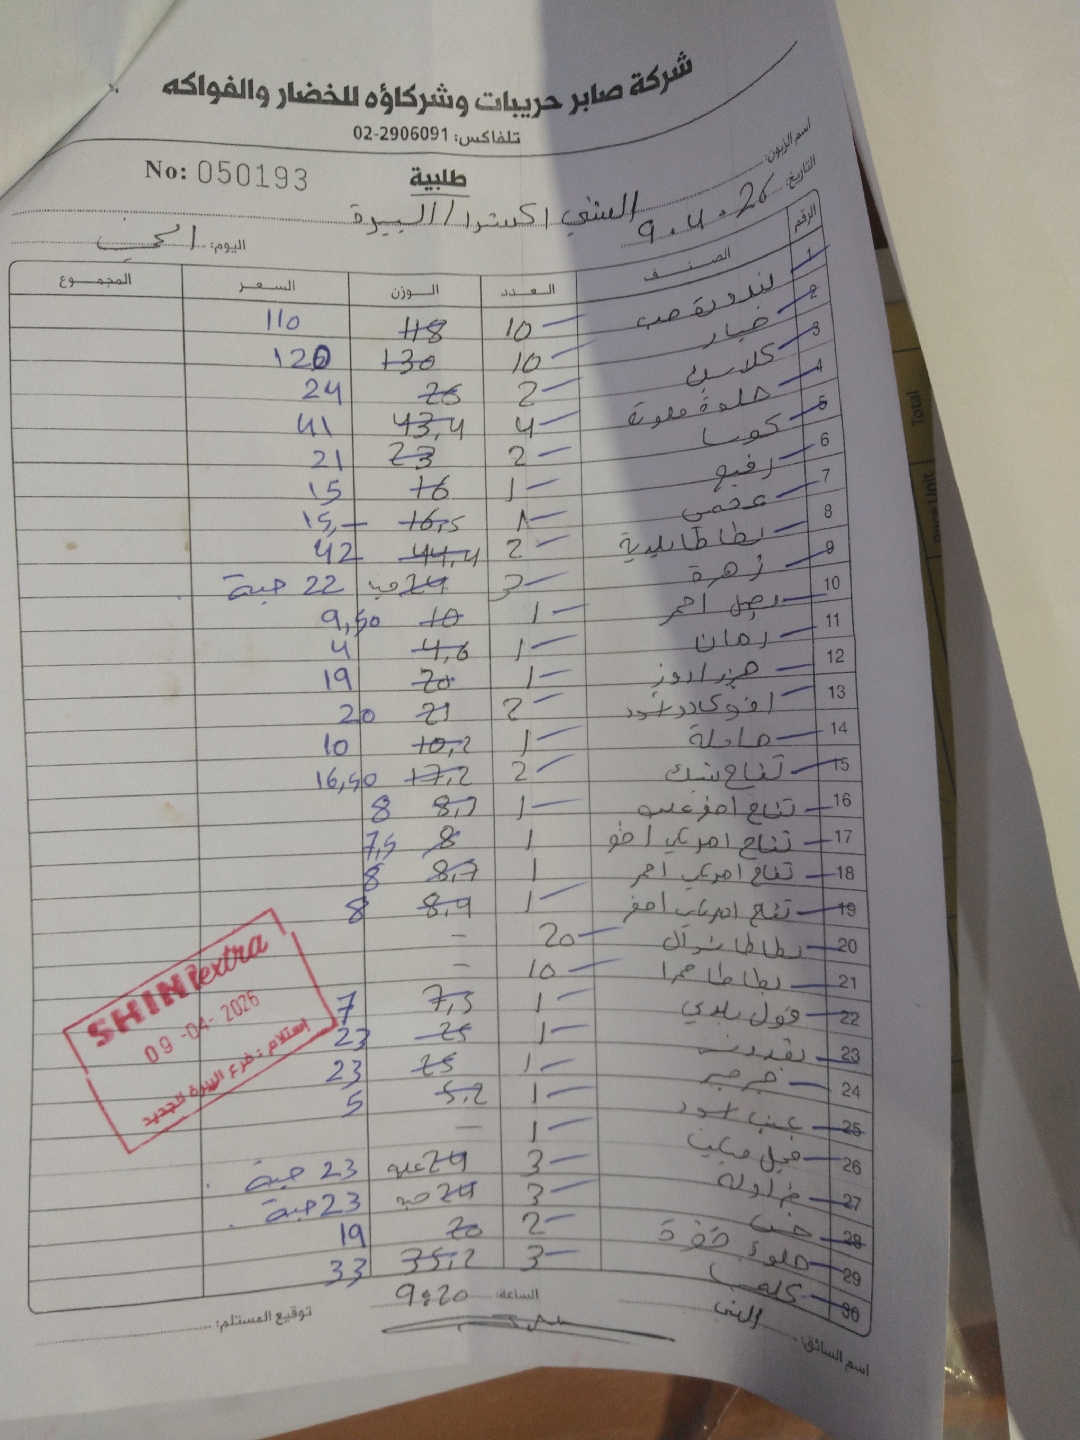 شركة صابر حريبات وشركاؤه للخضار والفواكه
تلفاكس: 02-2906091
No: 050193
طلبية
اسم الزبون: الشني اكسترا / البيرة
التاريخ: 9.4.26
اليوم:
الرقم الصنف العدد الوزن السعر المجموع
1 بندورة حب 10 118 110
2 خيار 10 130 120
3 2 25 24
4 حلوة ملونة 4 43,4 41
5 كوسا 2 23 21
6 رفيع 1 16 15
7 عجمي 1 16,5 15,-
8 بطاطا بلدية 2 44,4 42
9 زهرة 3 24 حبة 22 حبة
10 بصل احمر 1 10 9,50
11 رمان 1 4,6 4
12 1 20 19
13 افوكادو اسود 2 21 20
14 1 10,2 10
15 تفاح 2 17,2 16,50
16 تفاح اصفر 1 8,7 8
17 تفاح امريكي 1 8 7,5
18 تفاح امريكي احمر 1 8,7 8
19 تفاح امريكي اصفر 1 8,9 8
20 بطاطا شوال 20 -
21 بطاطا حمرا 10 -
22 فول بلدي 1 7,5 7
23 بقدونس 1 25 23
24 جرجير 1 25 23
25 عنب اسود 1 5,2 5
26 فجل 1 -
27 3 24 علبة 23 حبة
28 خس 3 24 حبة 23 حبة
29 حلوة 2 20 19
30 3 35,2 33
SHINI extra
09-04-2026
إستلام: فرع البيرة الجديد
اسم السائق:
الساعة: 9:20
توقيع المستلم:
Total
Price Unit